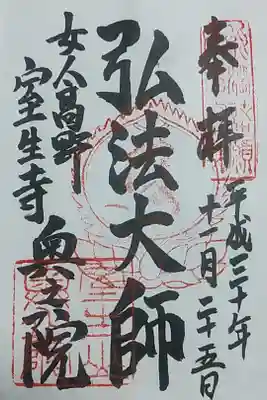 奉拝
平成三十年
十一月二十五日
弘法大師
奥之院
女人高野
室生寺